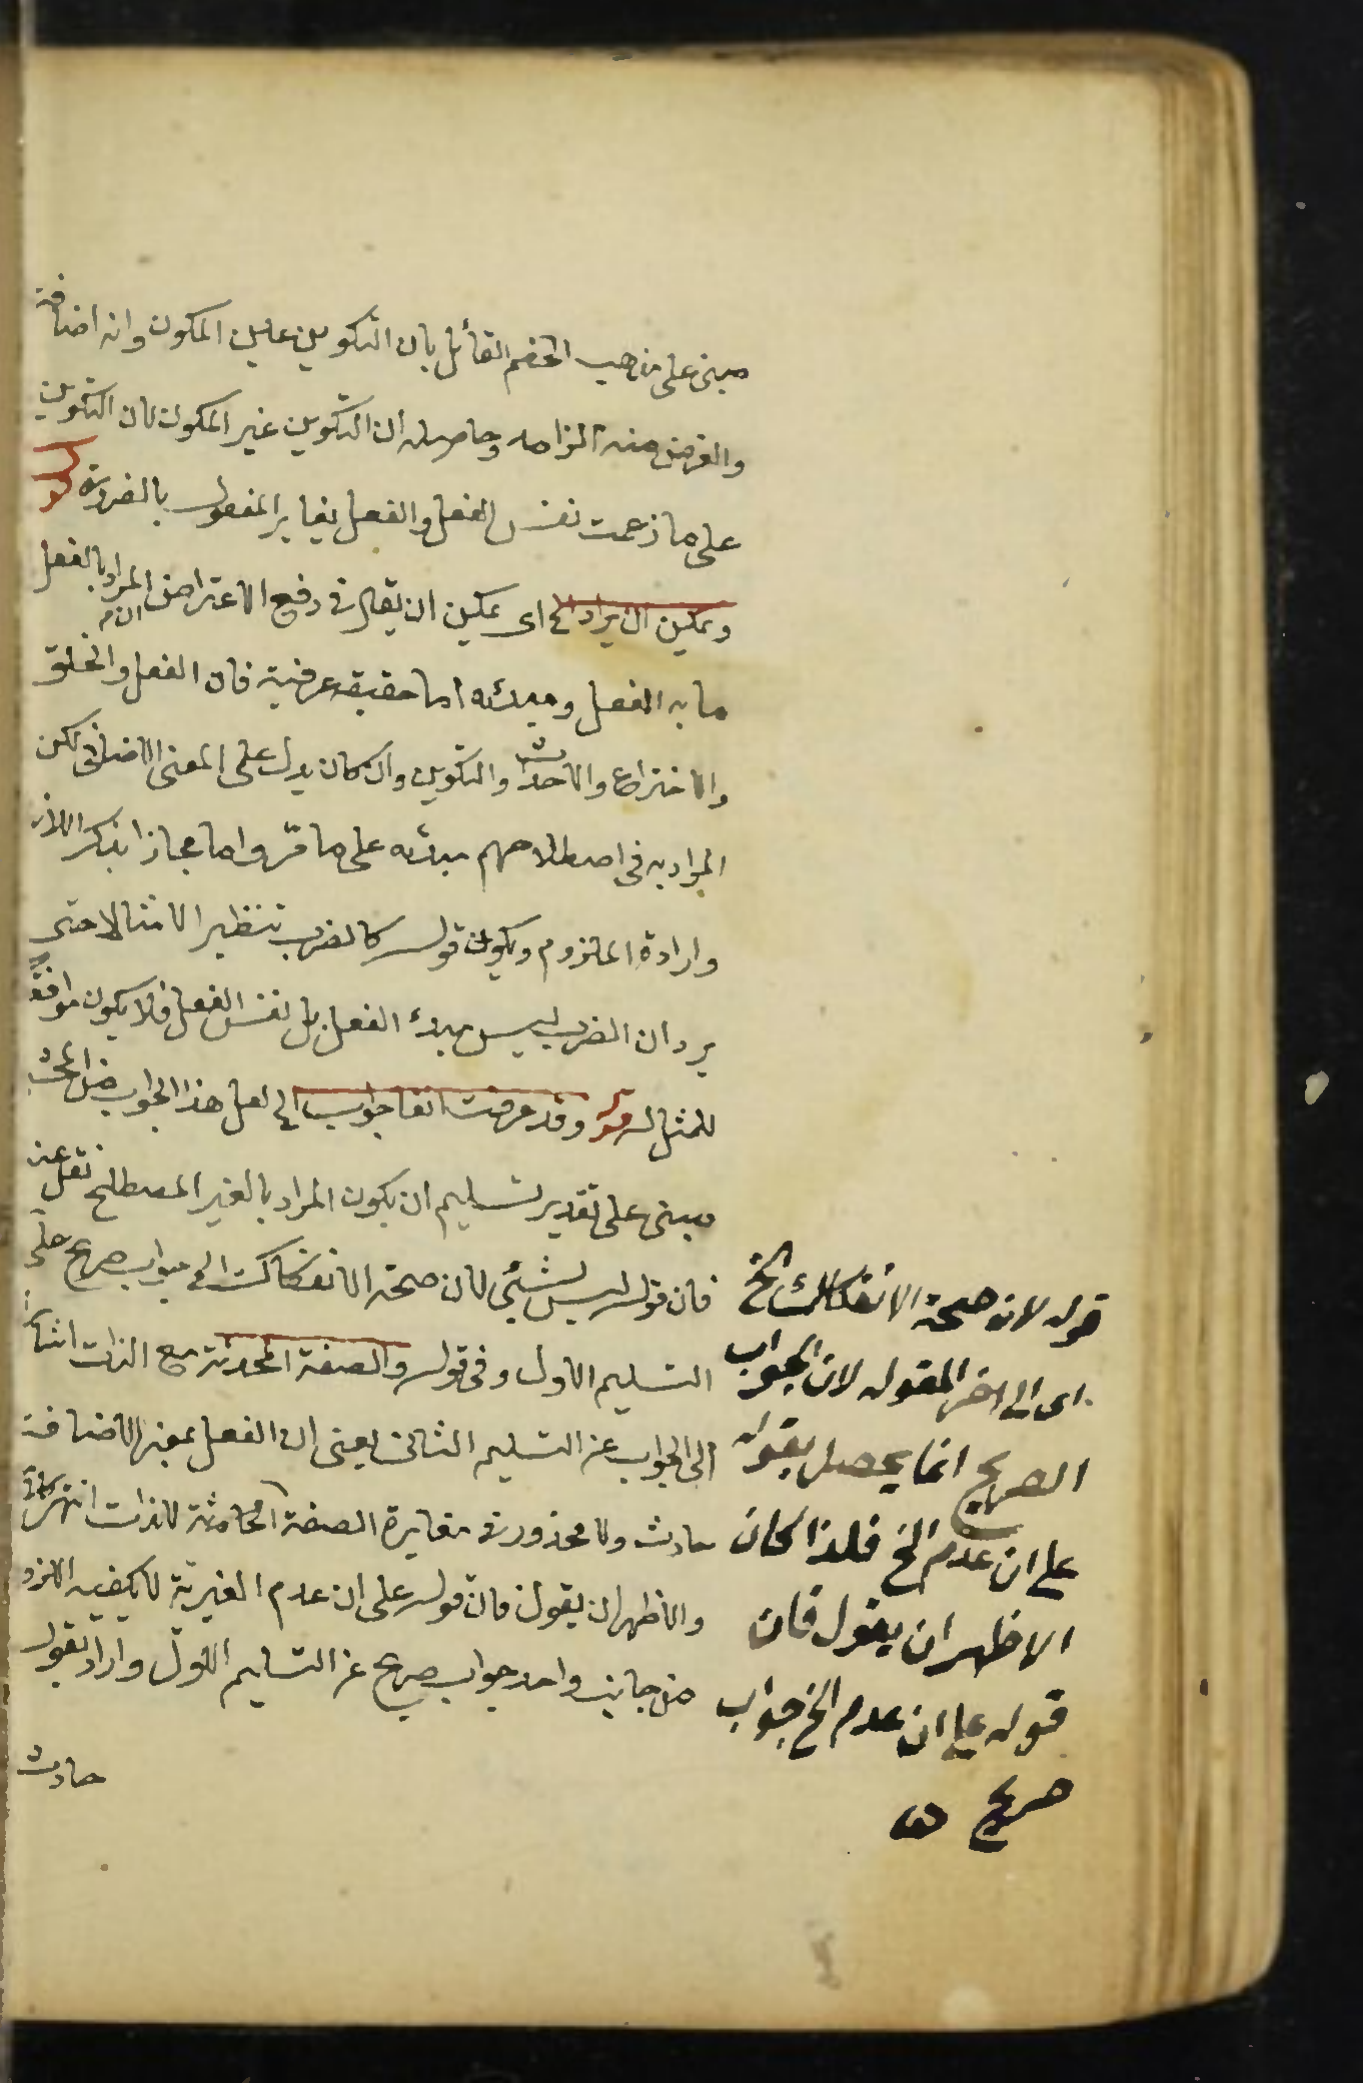 مبنى على مذهب الخصم القائل بان التكوين عين المكون وانه اضافة
والغرض منه الزامه وحاصله ان التكوين غير المكون لان التكوين
على ما زعمت نفس الفعل والفعل يغاير المفعول بالضرورة قوله
ويمكن ان يراد الخ اى يمكن ان يقال فى دفع الاعتراض ان المراد بالفعل
ما به الفعل ومبدئه اما حقيقة عرفية فان الفعل والخلق
والاختراع والاحداث والتكوين وان كان يدل على المعنى الاضافى لكن
المراد به فى اصطلاحهم مبدئه على ما مر واما مجازا بذكر اللازم
وارادة الملزوم ويكون قوله كالضرب تنظيرا لا مثالا حتى
يرد ان الضرب ليس مبدء الفعل بل نفس الفعل فلا يكون موافقا
للمثل له قوله وقد عرفت انفا جوابه الخ لعل هذا الجواب من المحشى
مبنى على تقدير تسليم ان يكون المراد بالغير المصطلح نقل عنه
فان قوله ليس بشئ لان صحة الانفكاك الخ جواب صريح على
التسليم الاول وفى قوله والصفة المحدثة مع الذات اشارة
الى الجواب عن التسليم الثانى يعنى ان الفعل بمعنى الاضافة
حادث ولا محذور فى مغايرة الصفة الحادثة للذات انتهى كلامه
والاظهر ان يقول فان قوله على ان عدم الغيرية لا يكفيه اللزوم
من جانب واحد جواب صريح عن التسليم الاول واراد بقوله
حادث
قوله لان صحة الانفكاك الخ
اى الى اخر المقول لان الجواب
الصريح انما يحصل بقوله
على ان عدم الخ فلذا كان
الاظهر ان يقول فان
قوله على ان عدم الخ جواب
صريح